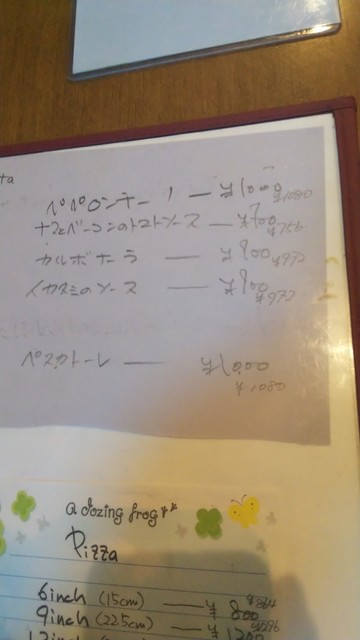 ta
ペペロンチーノ — ¥1000 ¥1080
ナスとベーコンのトマトソース — ¥700 ¥756
カルボナーラ — ¥900 ¥972
イカスミのソース — ¥900 ¥972
ペスカトーレ — ¥1,000
¥1080
a dozing frog
Pizza
6inch (15cm) — ¥800 ¥864
9inch (22.5cm) — ¥1200 ¥1296